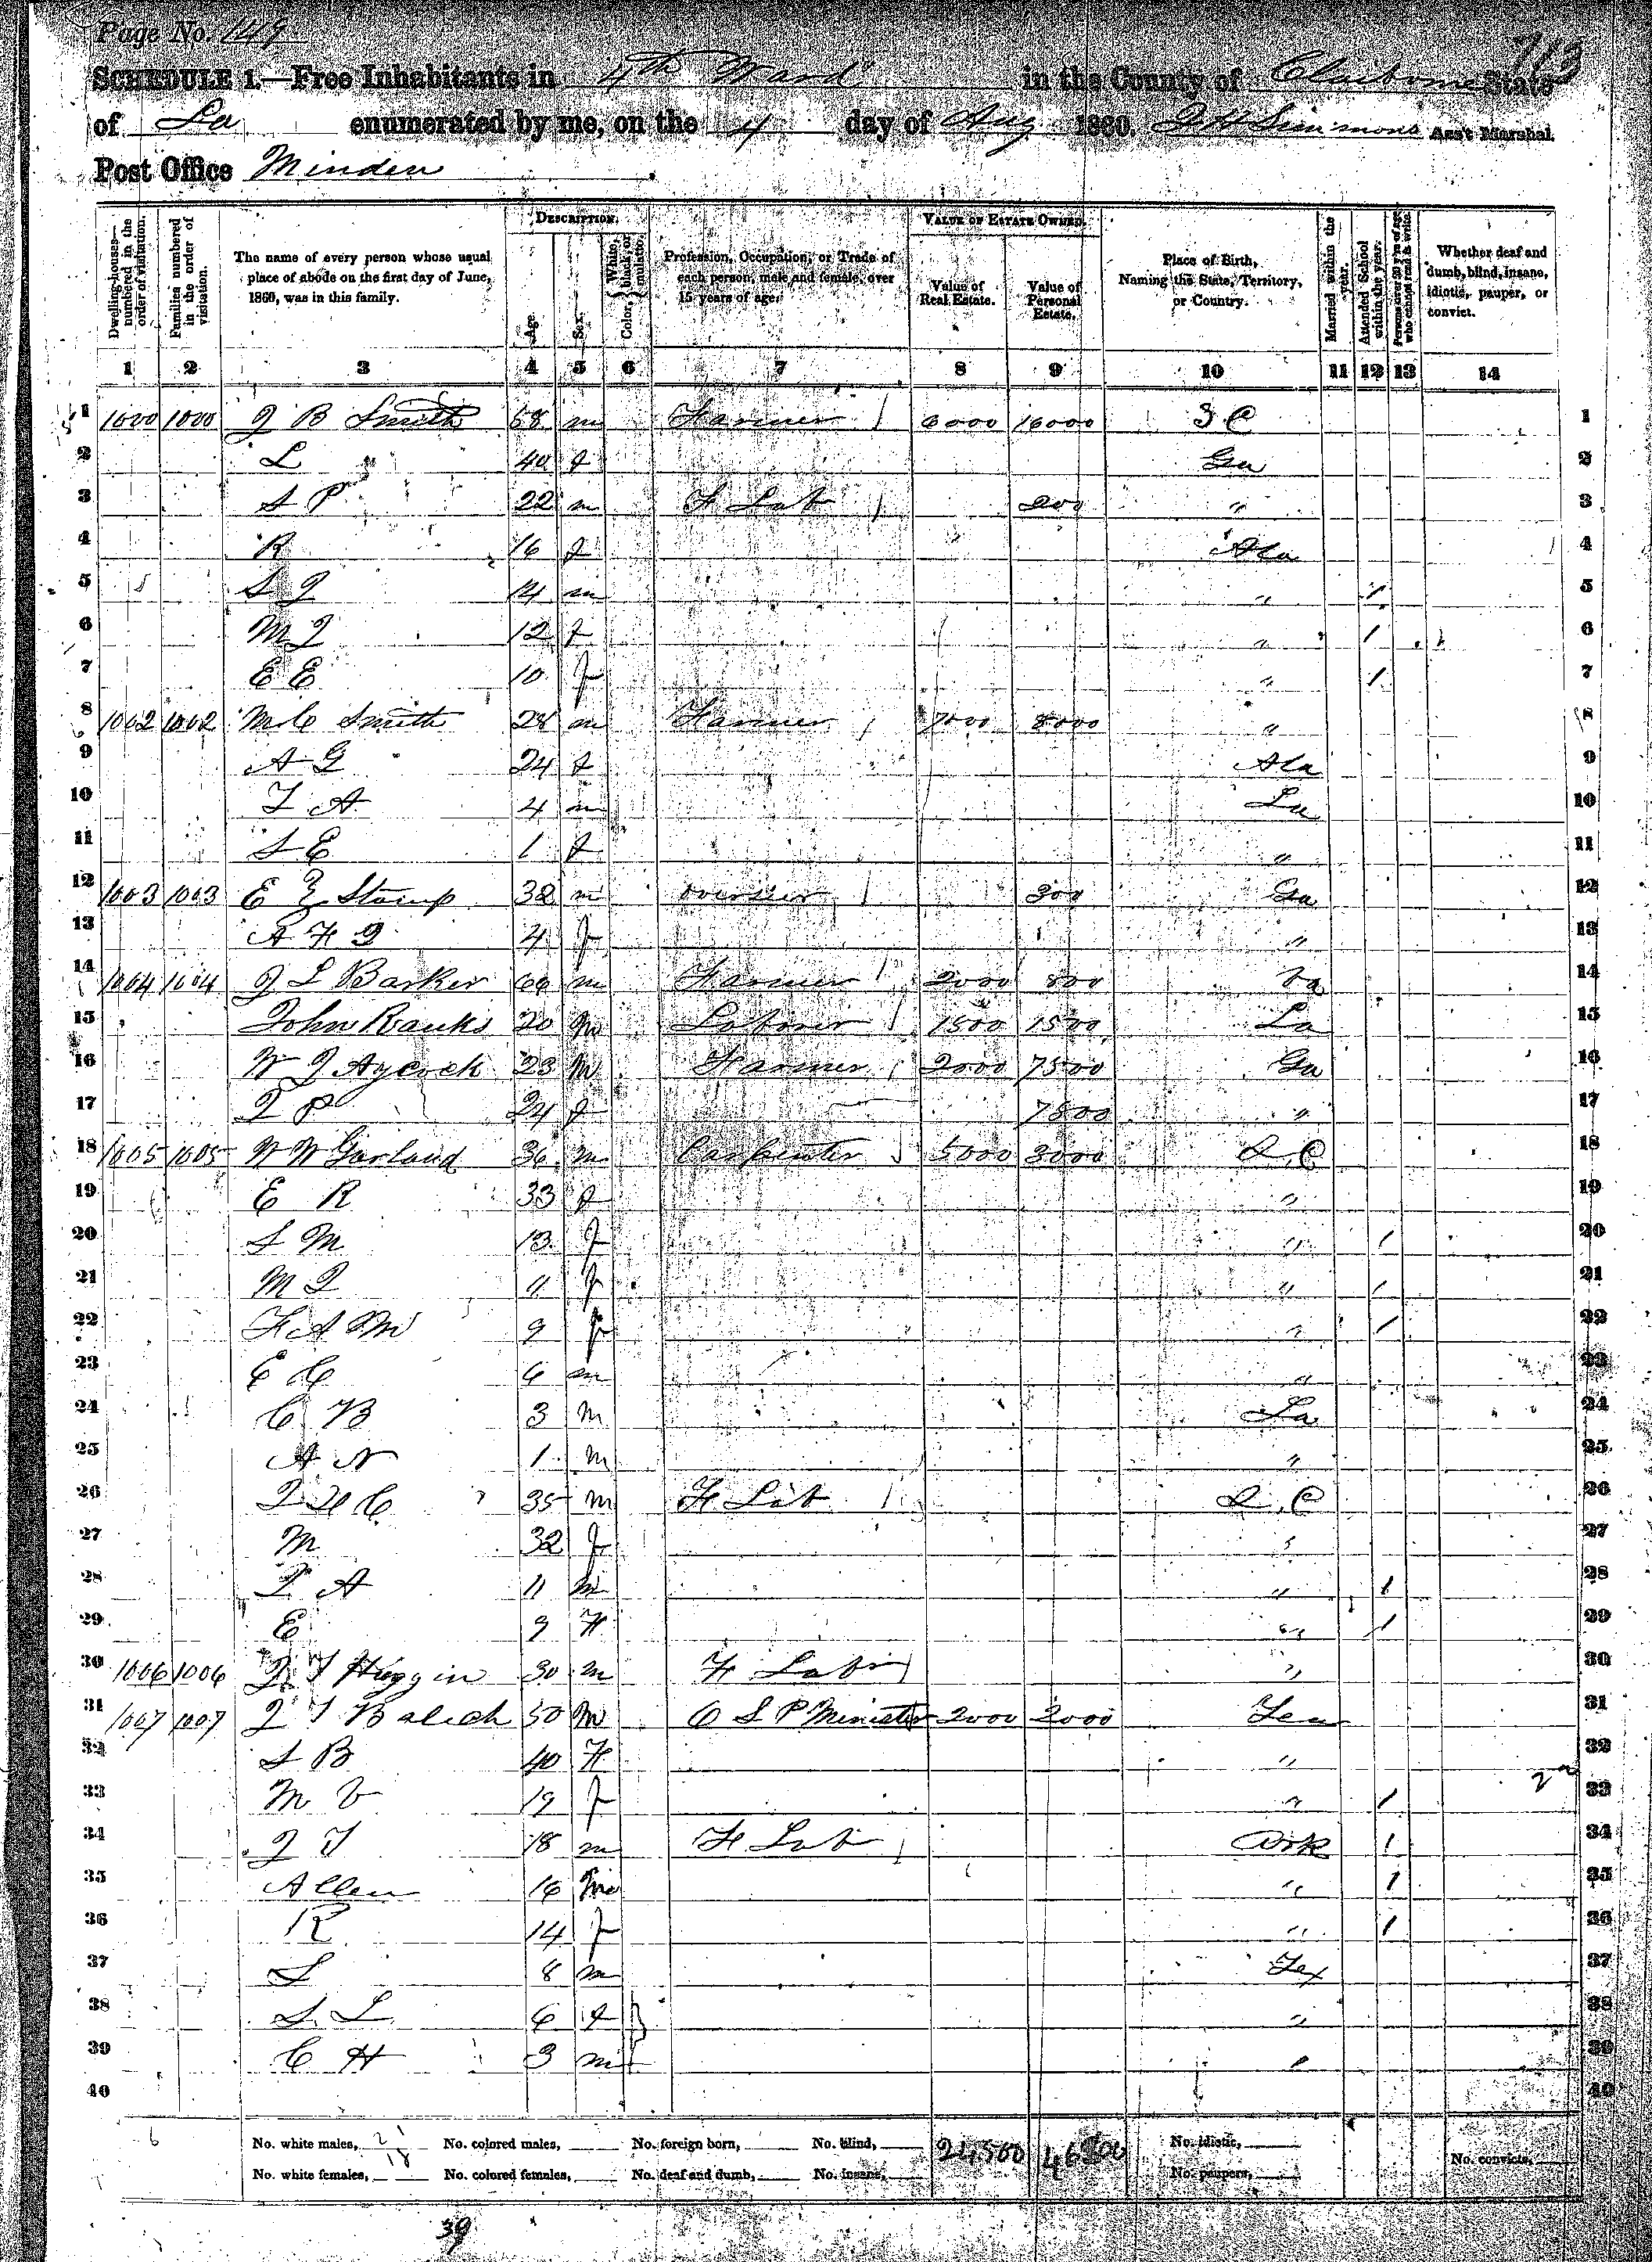 Page No. 149
713
SCHEDULE 1.—Free Inhabitants in 4th Ward in the County of Claiborne State
of La enumerated by me, on the 4 day of Aug 1860. Simmons Ass't Marshal.
Post Office Minden
Dwelling-houses—numbered in the order of visitation.
Families numbered in the order of visitation.
The name of every person whose usual place of abode on the first day of June, 1860, was in this family.
DESCRIPTION.
Age.
Sex.
Color, White, black, or mulatto.
Profession, Occupation, or Trade of each person, male and female, over 15 years of age.
VALUE OF ESTATE OWNED.
Value of Real Estate.
Value of Personal Estate.
Place of Birth, Naming the State, Territory, or Country.
Married within the year.
Attended School within the year.
Persons over 20 y'rs of age who cannot read & write.
Whether deaf and dumb, blind, insane, idiotic, pauper, or convict.
1 2 3 4 5 6 7 8 9 10 11 12 13 14
1 1000 1000 J B Smith 58 m Farmer / 6000 16000 S C 1
2 L 40 f Ga 2
3 S P 22 m F Lab / 200 " 3
4 R 16 f Ala 4
5 S J 14 m " / 5
6 M J 12 f " / 6
7 E E 10 f " / 7
8 1002 1002 M C Smith 28 m Farmer / 7000 8000 " 8
9 A G 24 f Ala 9
10 T A 4 m La 10
11 S E 1 f " 11
12 1003 1003 E Stamp 32 m overseer / 300 Ga 12
13 A F J 4 f " 13
14 1004 1004 J L Barker m Farmer / 2000 800 Va 14
15 John Banks 20 M Laborer / 1500 1500 La 15
16 W J Aycock 23 M Farmer / 2000 7500 Ga 16
17 J P 24 f 7500 " 17
18 1005 1005 W W Garland 36 m Carpenter / 5000 3000 S C 18
19 E R 33 f " 19
20 S M 13 f " / 20
21 M J 11 f " / 21
22 F A M 9 f " / 22
23 E C 6 m " 23
24 C B 3 M La 24
25 A N 1 m " 25
26 J H C 35 m F Lab / S. C 26
27 M 32 f " 27
28 J A 11 m " / 28
29 E 9 F " / 29
30 1006 1006 J T Huggin 30 m F Labr / " 30
31 1007 1007 J T Balech 50 M O S P Minister 2000 2000 Ten 31
32 S B 40 F " 32
33 M V 19 f " / 33
34 J T 18 m F Labr / Ark / 34
35 Allen 16 M " / 35
36 R 14 f " / 36
37 L 8 m Tex 37
38 S L 6 f " 38
39 C H 3 m " 39
40 40
No. white males, 21 No. colored males, No. foreign born, No. blind, 24,500 No. idiotic,
No. white females, 18 No. colored females, No. deaf and dumb, No. insane, No. paupers, No. convicts,
39